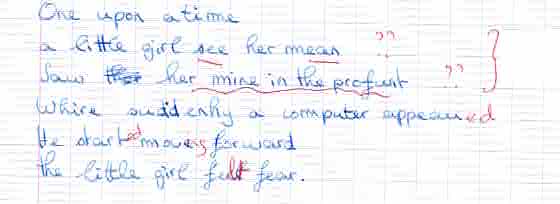 One upon a time
a little girl see her mean ??
Saw her mine in the profunt ??
Whire suddenly a computer appeared
He started moving forward
the little girl felt fear.